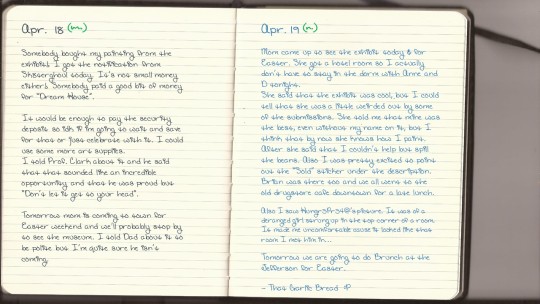 Apr. 18
Somebody bought my painting from the
exhibit! I got the notification from
today. It's not small money
either! Somebody paid a good bit of money
for "Dream House".
It would be enough to pay the security
deposit so idk if I'm going to wait and save
for that or just celebrate with it. I could
use some more art supplies.
I told Prof. Clark about it and he said
that that sounded like an incredible
opportunity and that he was proud but
"Don't let it get to your head".
Tomorrow mom is coming to town for
Easter weekend and we'll probably stop by
to see the museum. I told Dad about it to
be polite but I'm quite sure he isn't
coming.
Apr. 19
Mom came up to see the exhibit today & for
Easter. She got a hotel room so I actually
don't have to stay in the dorm with Anne and
D tonight.
She said that the exhibit was cool, but I could
tell that she was a little weirded out by some
of the submissions. She told me that mine was
the best, even without my name on it, but I
think that by now she knows how I paint.
After she said that I couldn't help but spill
the beans. Also I was pretty excited to point
out the "Sold" sticker under the description.
was there too and we all went to the
old drugstore cafe downtown for a late lunch.
Also I saw picture. It was of a
deranged girl strung up in the top corner of a room.
It made me uncomfortable cause it looked like that
room I met him in...
Tomorrow we are going to do Brunch at the
Jefferson for Easter.
- That Garlic Bread :P